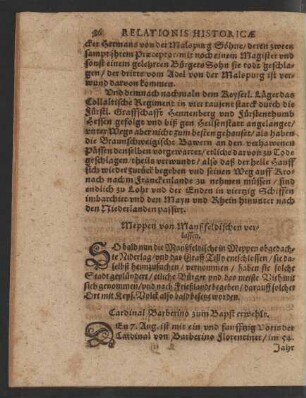 86 RELATIONIS HISTORICÆ
cker Hermans von der Malspurg Söhne / deren zween
sampt ihrem Præceptore mit noch einem Magister vnd
sonst einem gelehrten Bürgers Sohn sie todt geschla-
gen / der dritte vom Adel von der Malspurg ist ver-
wund darvon kommen.
Vnd demnach nachmaln dem Keyserl. Läger das
Collaltische Regiment in vier tausent starck durch die
Fürstl. Graffschafft Hennenberg vnd Fürstenthumb
Hessen gefolgt vnd biß gen Geissenstatt angelanget /
vnter Wegs aber nicht zum besten gehauset / als haben
die Braunschweigische Bawern an den verhawenen
Pässen denselben vorgewartet / etliche darvon zu Tode
geschlagen / theils verwundt / also daß der helle Hauff
sich wieder zurück begeben vnd seinen Weg auff Kro-
nach nach im Franckenlande zu nehmen müssen / sind
endlich zu Lohr vnd der Enden in viertzig Schiffen
imbarchirt vnd den Mayn vnd Rhein hinunter nach
den Niederlanden passirt.
Meppen von Mansfeldischen ver-
lassen.
SO bald nun die Mansfeldische in Meppen obgedach-
te Niderlag / vnd das Graff Tilly entschlossen / sie da-
selbst heimzusuchen / vernommen / haben sie solche
Stadt geplündert / etliche Bürger vnd das meiste Viehe mit
sich genommen / vnd nach Frießlande begeben / darauff solcher
Ort mit Keys. Volck also bald besetzt worden.
Cardinal Barberino zum Bapst erwehlt.
DEn 7. Aug. ist mit ein vnd funfftzig Votis der
Cardinal von Barberino Florentiner / im 54.
Jahr